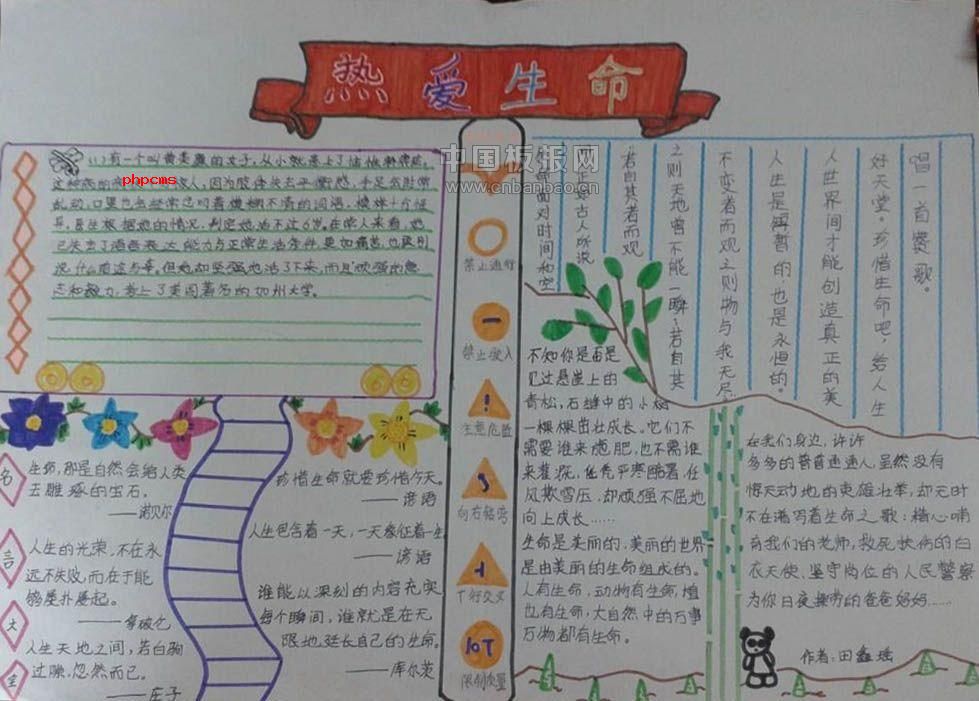 热爱生命
中国板报网
www.cnbanbao.cn
phpcms
有一个叫黄美廉的女子,从小就患上了脑性麻痹症。
人,因为肢体失去平衡感,手足会时常
乱动,口里也会经常念叨着模糊不清的词语,模样十分怪
异。医生根据她的情况,判定她活不过6岁。在常人来看,她
已失去了语言表达能力与正常生活条件,更加痛苦,也莫别
说什么前途与幸。但她却坚强地活了下来,而且顽强的意
志和毅力,考上了美国著名的加州大学。
禁止通行
禁止驶入
注意危险
向右
T行交叉
限制质量
唱一首赞歌。
好天堂。珍惜生命吧,给人生
人世界间才能创造真正的美
人生是短暂的,也是永恒的。
不变者而观之则物与我无尽
之则天地曾不能一瞬;若自其
若自其者而观
正好古人所说
面对时间和空
不知你是否是
见过悬崖上的
青松,石缝中的小树
一棵棵茁壮成长。它们不
需要谁来施肥,也不需谁
来灌溉,任凭严寒酷暑,任
风欺雪压,却顽强不屈地
向上成长……
生命是美丽的,美丽的世界
是由美丽的生命组成的。
人有生命,动物有生命,植
也有生命,大自然中的万事
万物都有生命。
在我们身边,许许
多多的普普通通人,虽然没有
惊天动地的英雄壮举,却无时
不在谱写着生命之歌:精心哺
育我们的老师,救死扶伤的白
衣天使、坚守岗位的人民警察
为你日夜操劳的爸爸妈妈……
作者:田鑫瑶
名
言
大
全
生命,那是自然会给人类
去雕琢的宝石。
——诺贝尔
人生的光荣,不在永
远不失败,而在于能
够屡扑屡起。
——拿破仑
人生天地之间,若白驹
过隙,忽然而已。
——庄子
珍惜生命就要珍惜今天。
——谚语
人生包含着一天,一天象征着一生
——谚语
谁能以深刻的内容充实
每个瞬间,谁就是在无
限地延长自己的生命。
——库尔茨